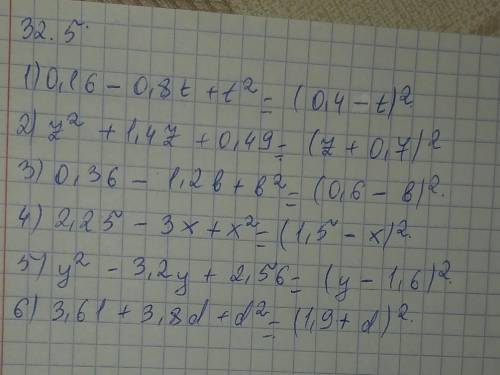 32.5.
1) 0,16 - 0,8t + t² = (0,4 - t)².
2) z² + 1,4z + 0,49 = (z + 0,7)²
3) 0,36 - 1,2в + в² = (0,6 - в)².
4) 2,25 - 3x + x² = (1,5 - x)².
5) y² - 3,2y + 2,56 = (y - 1,6)².
6) 3,61 + 3,8d + d² = (1,9 + d)².